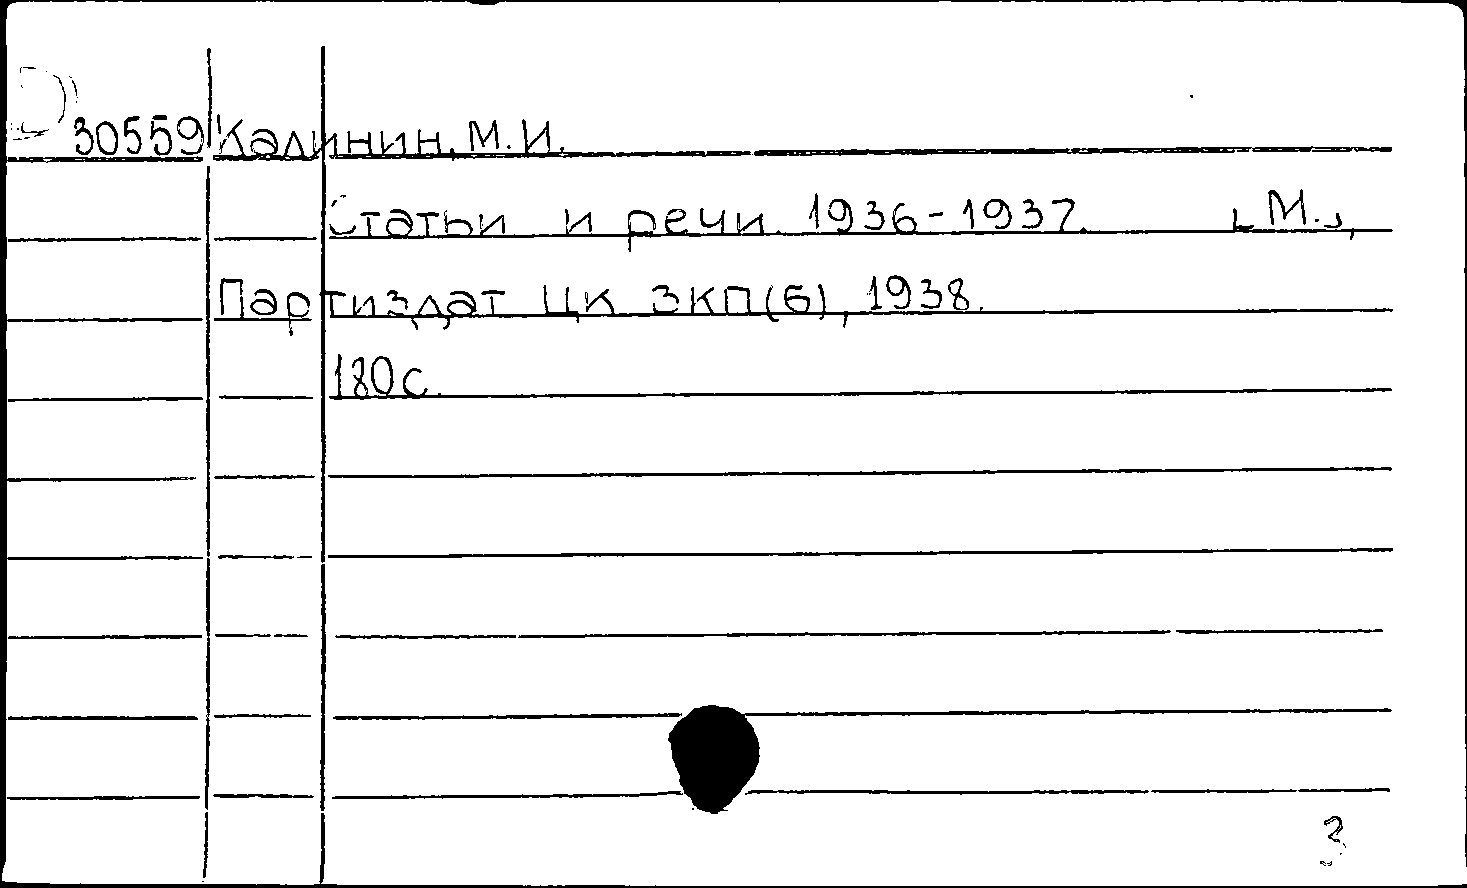 30559 Калинин, М.И.
Статьи и речи. 1936-1937. [М.],
Партиздат ЦК ВКП(б), 1938.
180с.
3